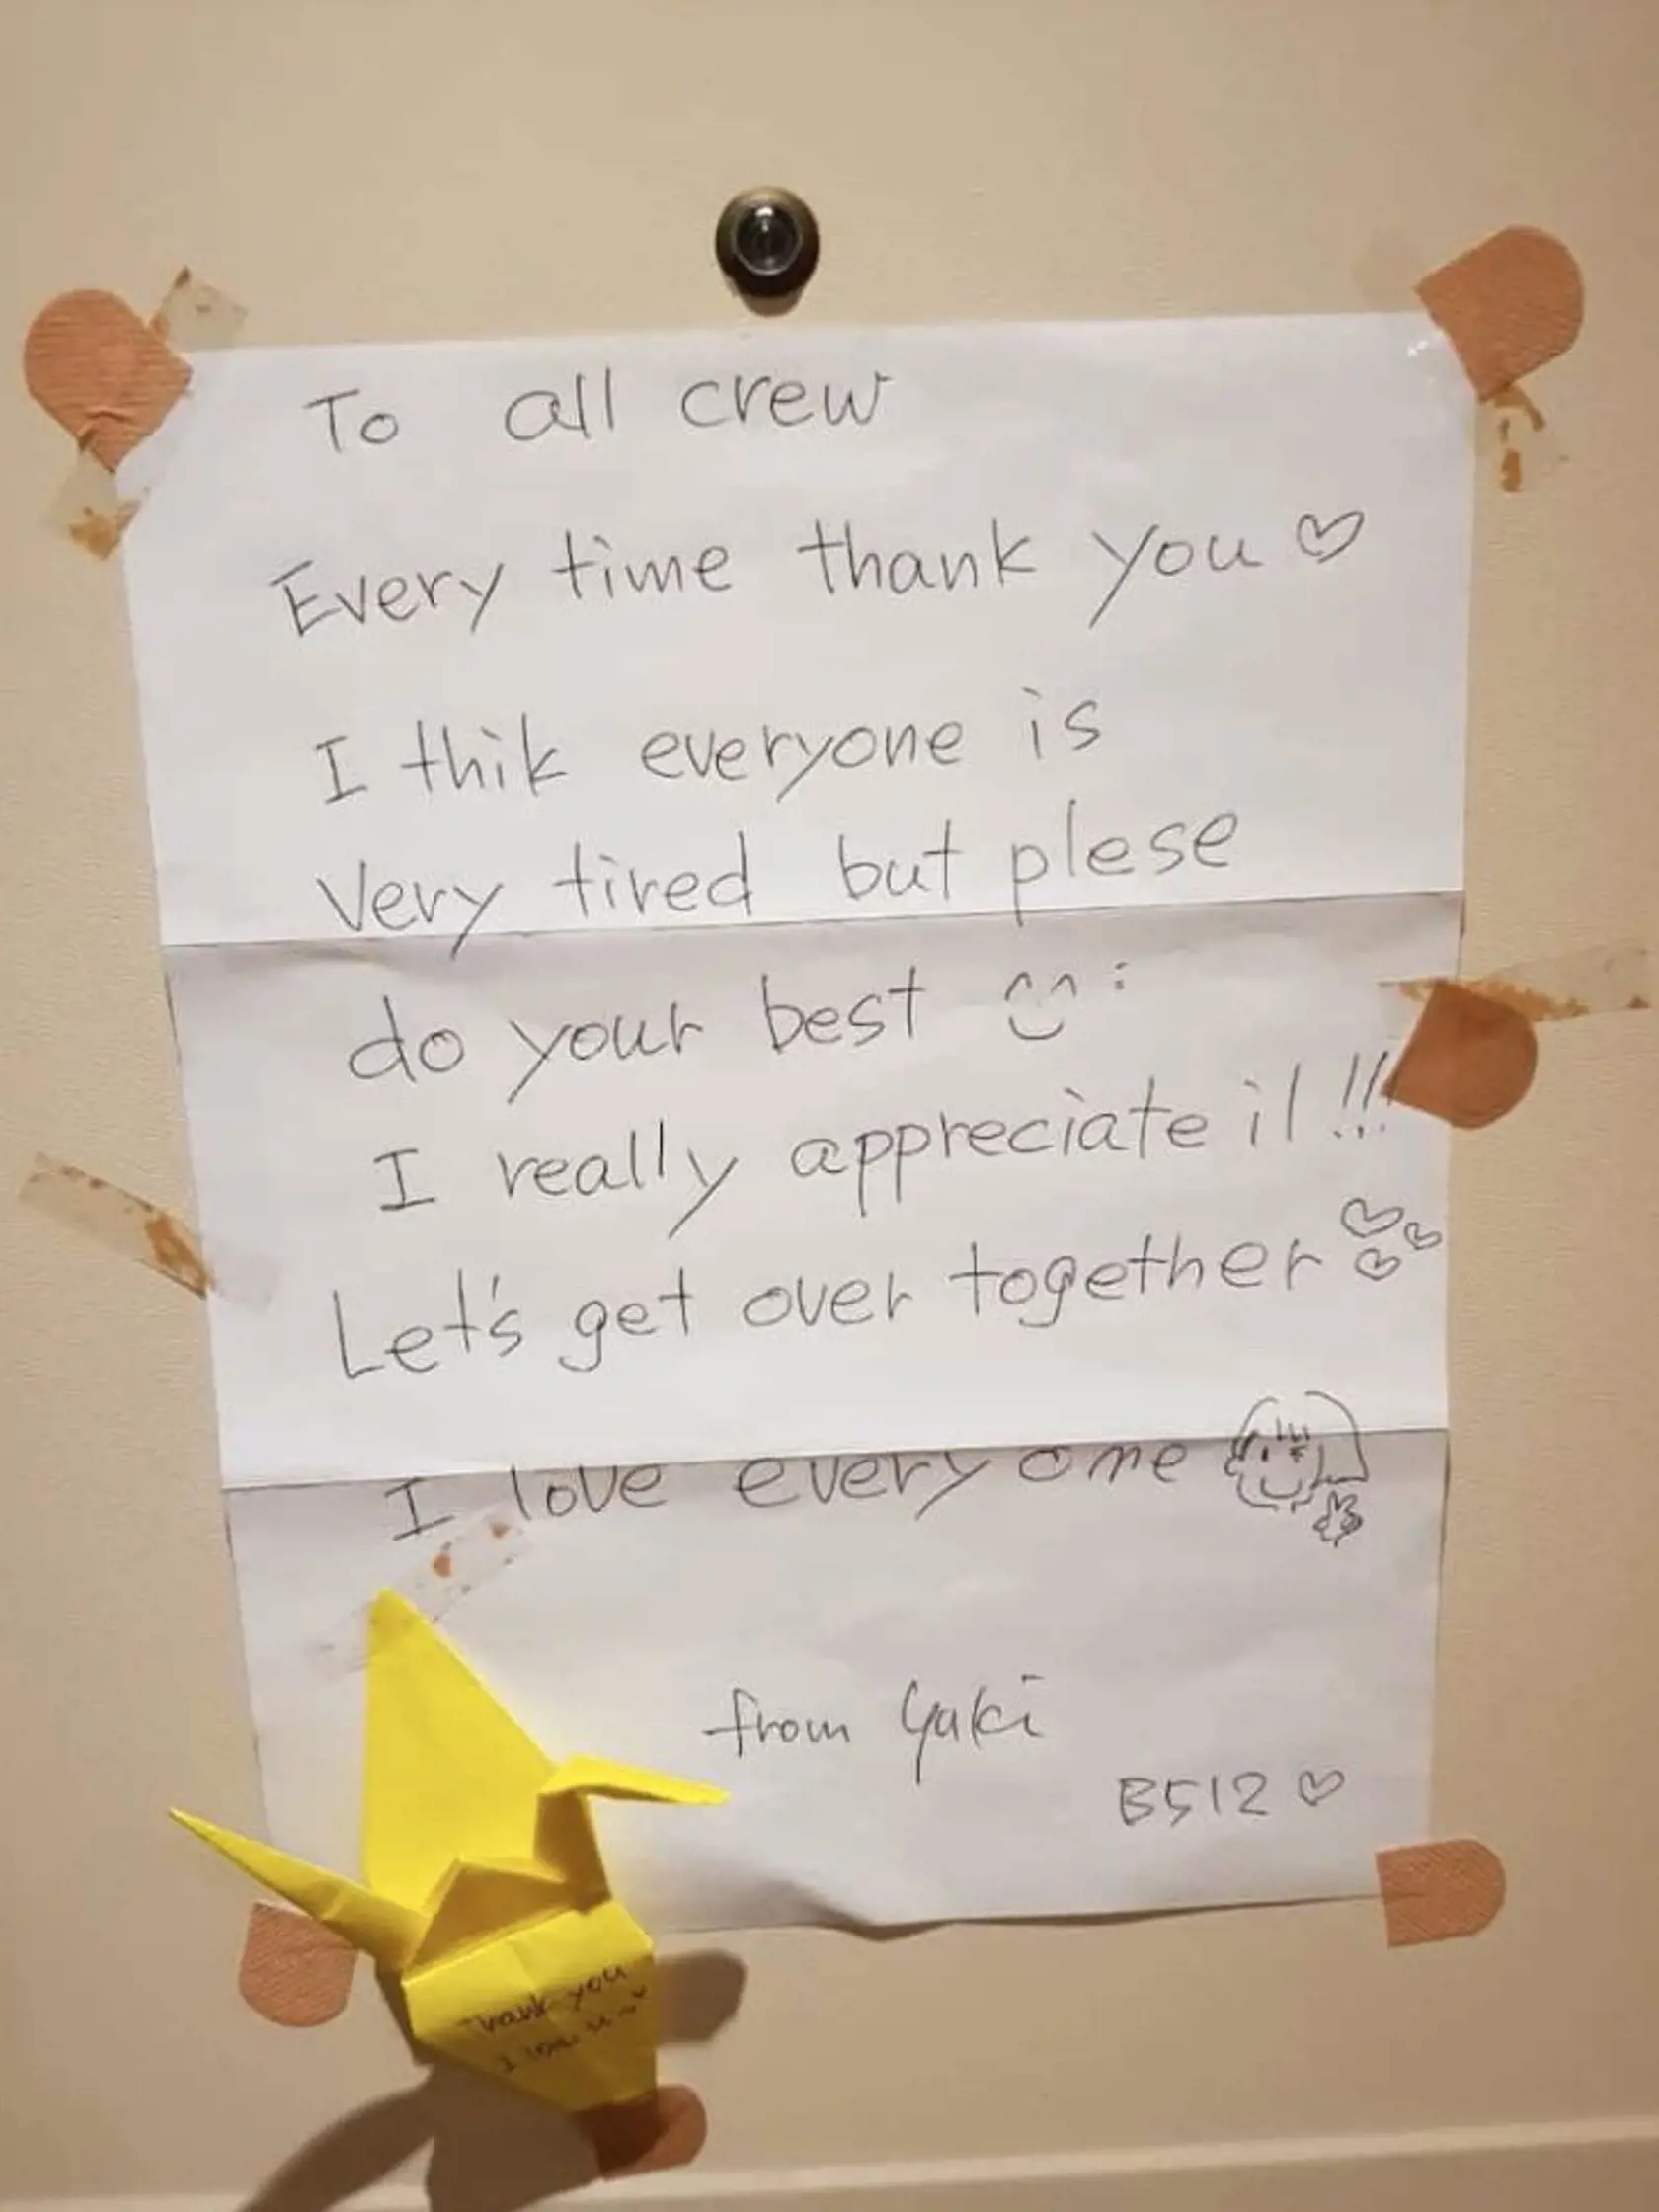 To all crew
Every time thank you ♡
I thik everyone is
Very tired but plese
do your best
I really appreciate it !!!
Let's get over together ♡♡♡
I love everyone
from Yuki
B512 ♡
Thank you
I